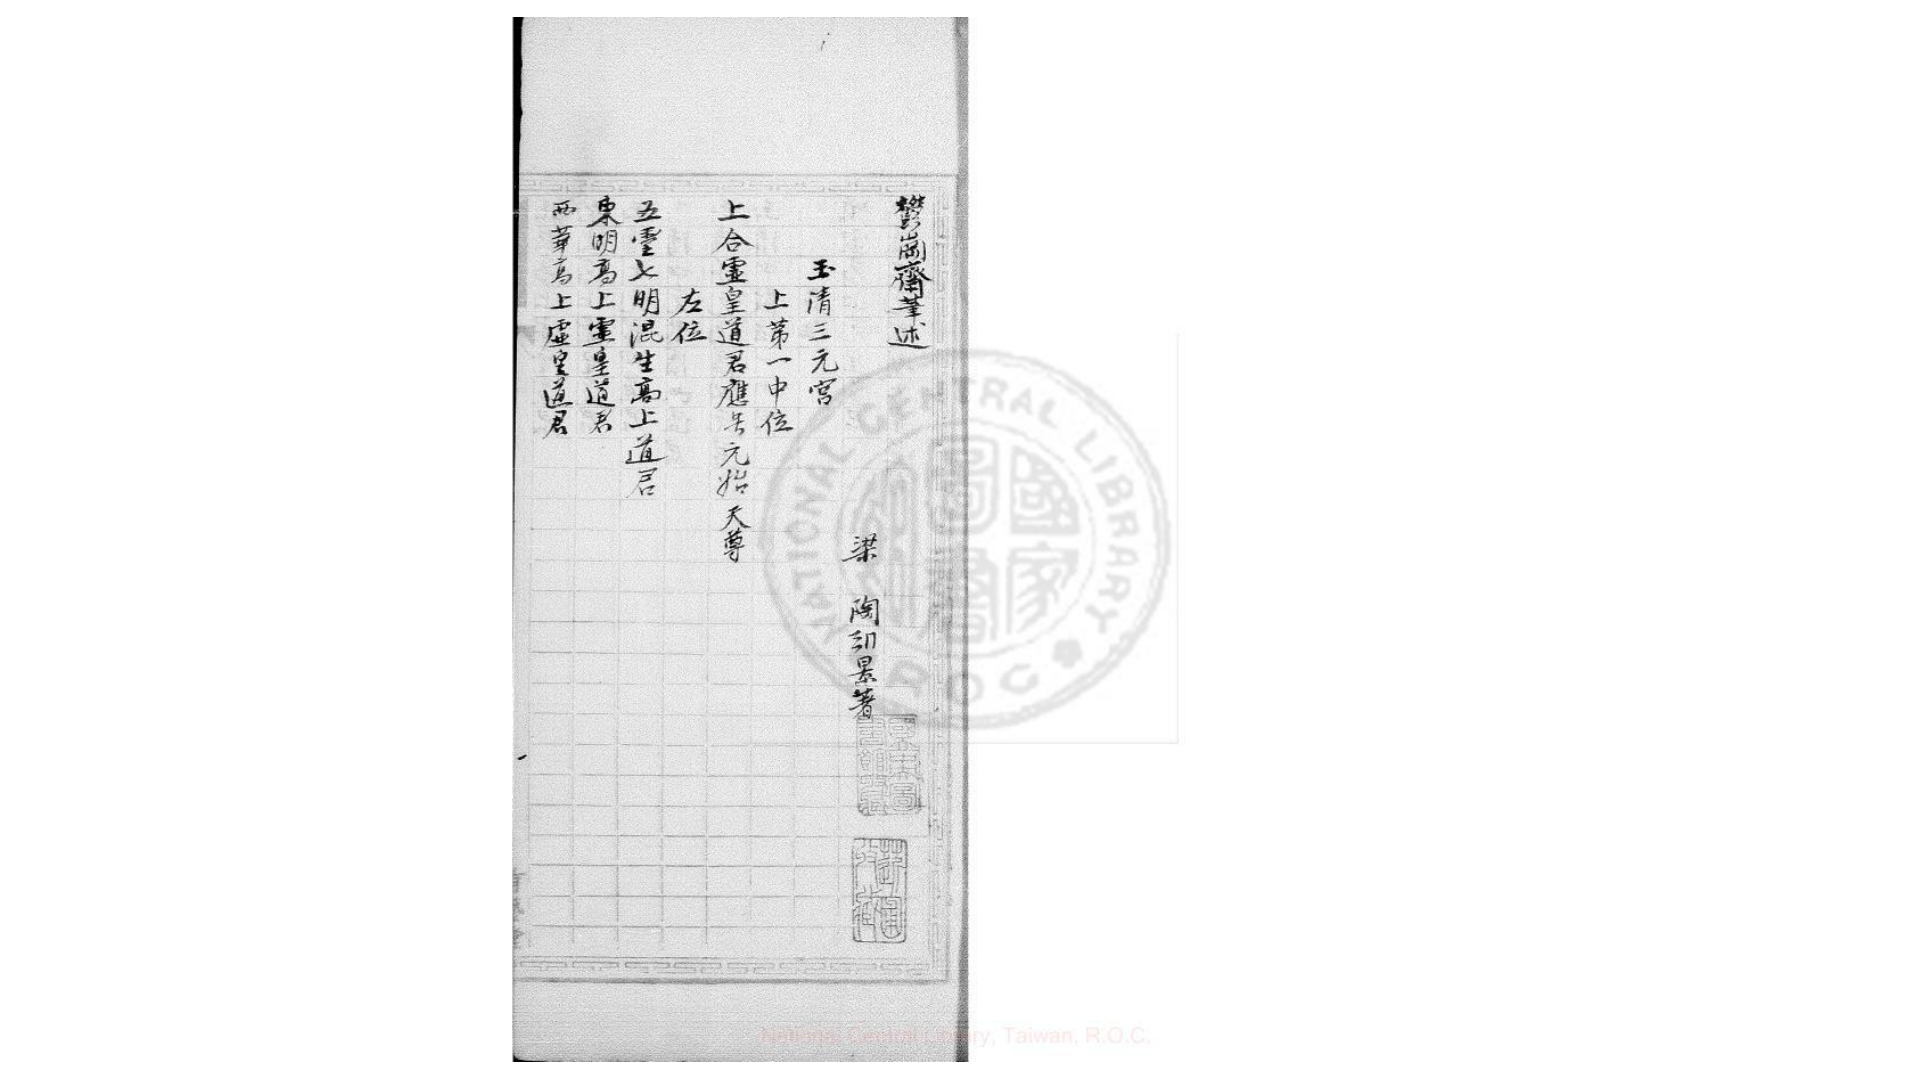 鬱岡齋筆述
梁 陶弘景著
玉清三元宮
上第一中位
上合虛皇道君應号元始天尊
左位
五靈七明混生高上道君
東明高上虛皇道君
西華高上虛皇道君
國家圖書館
NATIONAL CENTRAL LIBRARY
R.O.C
National Central Library, Taiwan, R.O.C.